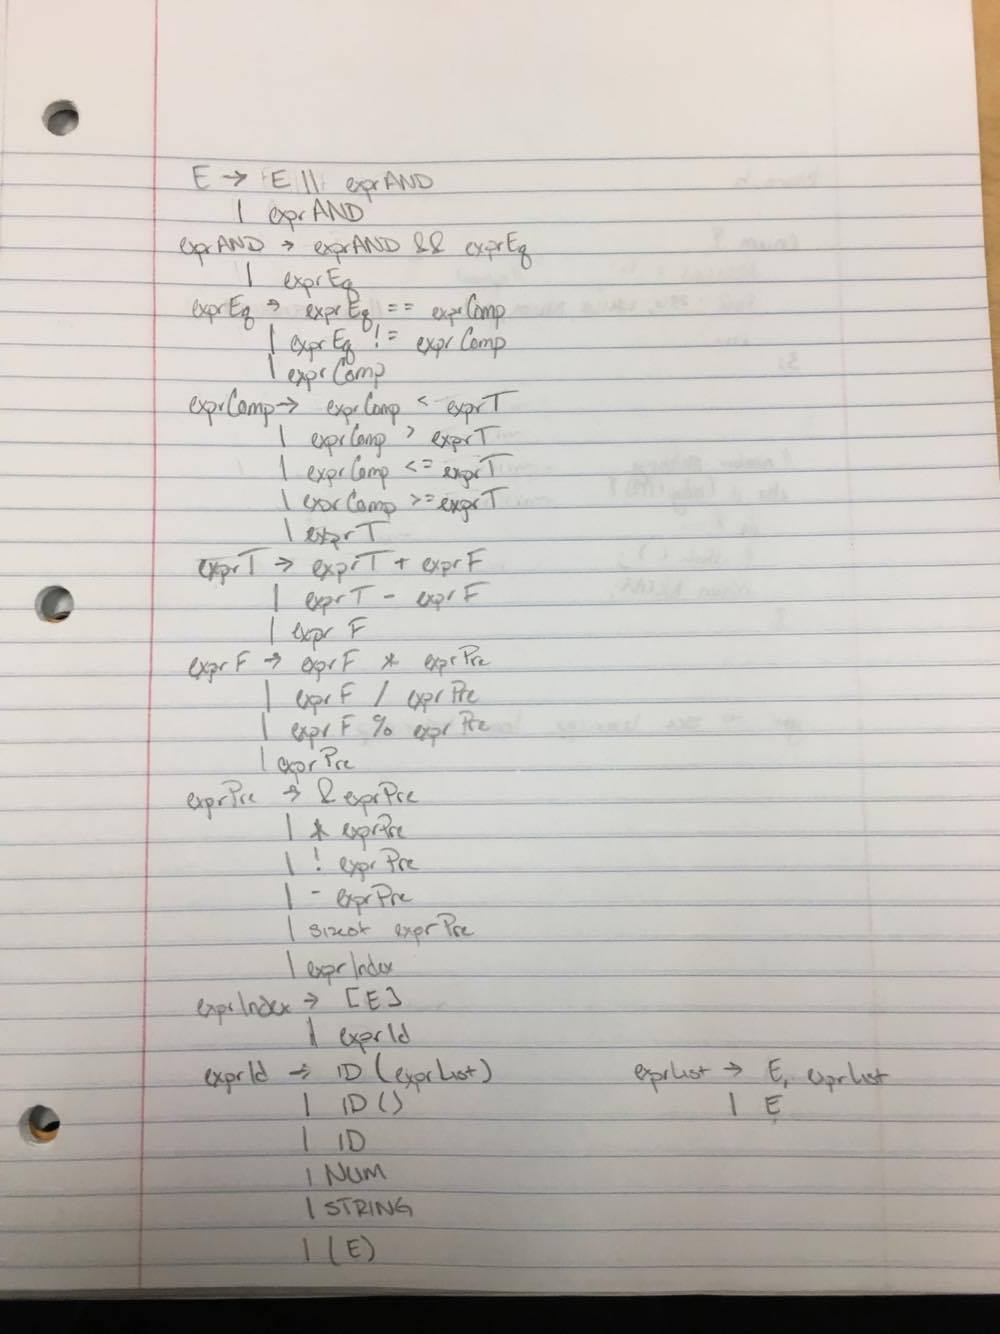 E → E || exprAND
| exprAND
exprAND → exprAND && exprEq
| exprEq
exprEq → exprEq == exprComp
| exprEq != exprComp
| exprComp
exprComp → exprComp < exprT
| exprComp > exprT
| exprComp <= exprT
| exprComp >= exprT
| exprT
exprT → exprT + exprF
| exprT - exprF
| expr F
exprF → exprF * exprPre
| exprF / exprPre
| exprF % exprPre
| exprPre
exprPre → & exprPre
| * exprPre
| ! exprPre
| - exprPre
| sizeof exprPre
| exprIndex
exprIndex → [E]
| exprId
exprId → ID (exprList)
| ID ()
| ID
| NUM
| STRING
| (E)
exprList → E, exprList
| E